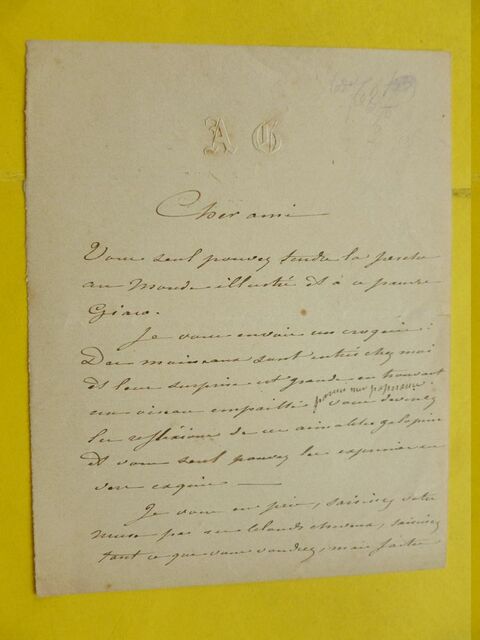 A G
Cher ami
Vous seul pouvez tendre la perche
au Monde illustré et à ce pauvre
Giaco.
Je vous envoie un croquis :
Des moineaux sont entrés chez moi
et leur surprise est grande en trouvant
un oiseau empaillé vous devinez
les reflexions de ces aimables galopins
et vous seul pouvez les exprimer en
vers exquis —
Je vous en prie, saisissez votre
muse par ses blonds cheveux, saisissez
tant ce que vous voudrez, mais faites